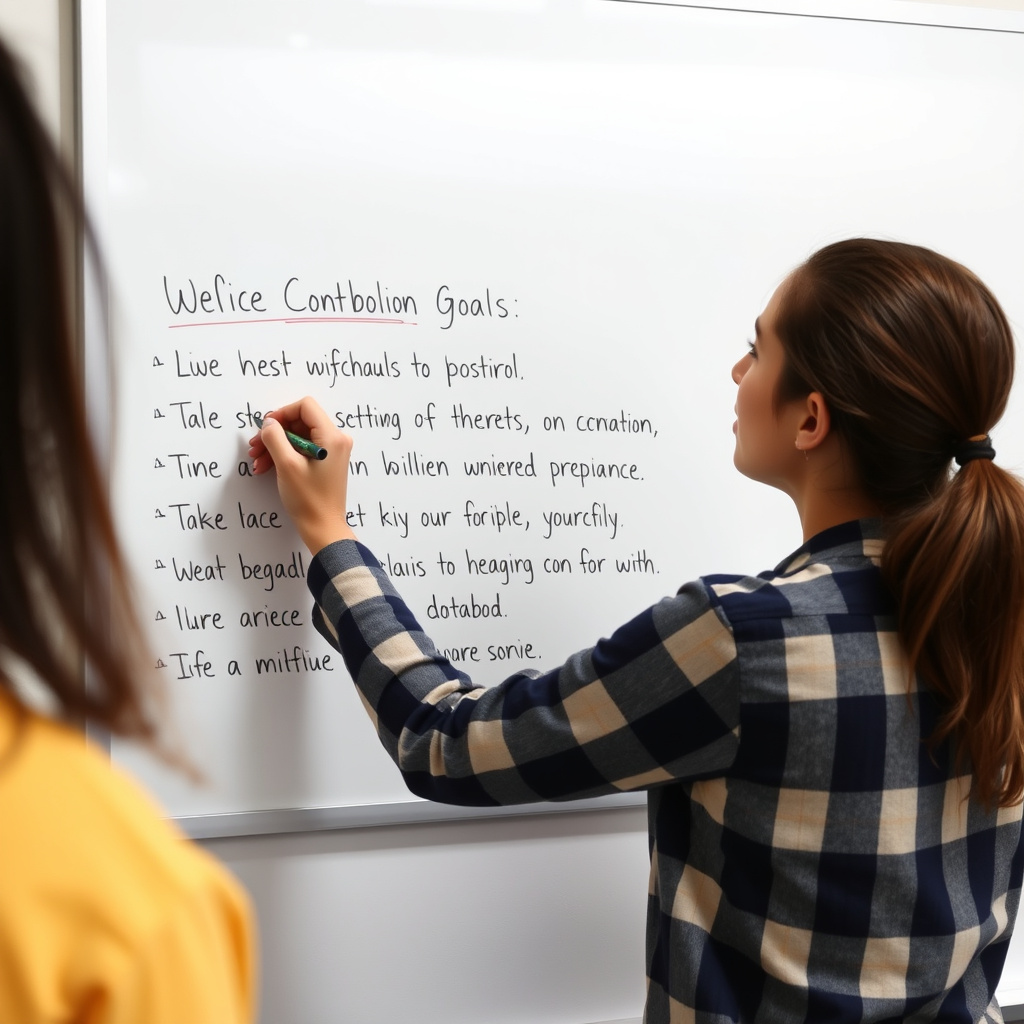 Wefice Contbolion Goals:
Live hest wifchauls to postirol.
Tale setting of therets, on ccnation,
Tine in billien wniered prepiance.
Take lace kiy our foriple, yourcfily.
Weat begadl to heagirg con for with.
Ilure ariece dotabod.
Iife a mitflue sonie.